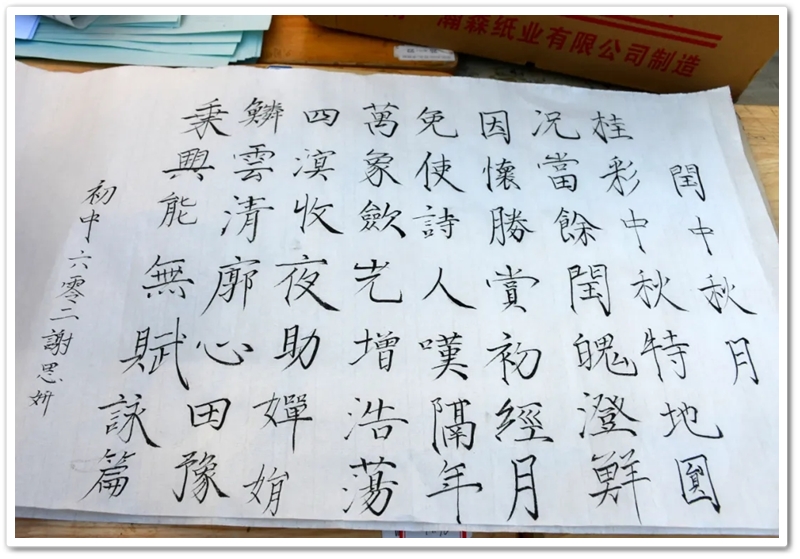 瀚森纸业有限公司制造
閏中秋月
桂彩中秋特地圓
况當餘閏魄澄鮮
因懷勝賞初經月
免使詩人嘆隔年
萬象歛光增浩蕩
四溟收夜助嬋娟
鱗雲清廓心田豫
乗興能無賦詠篇
初中六零二謝思妍